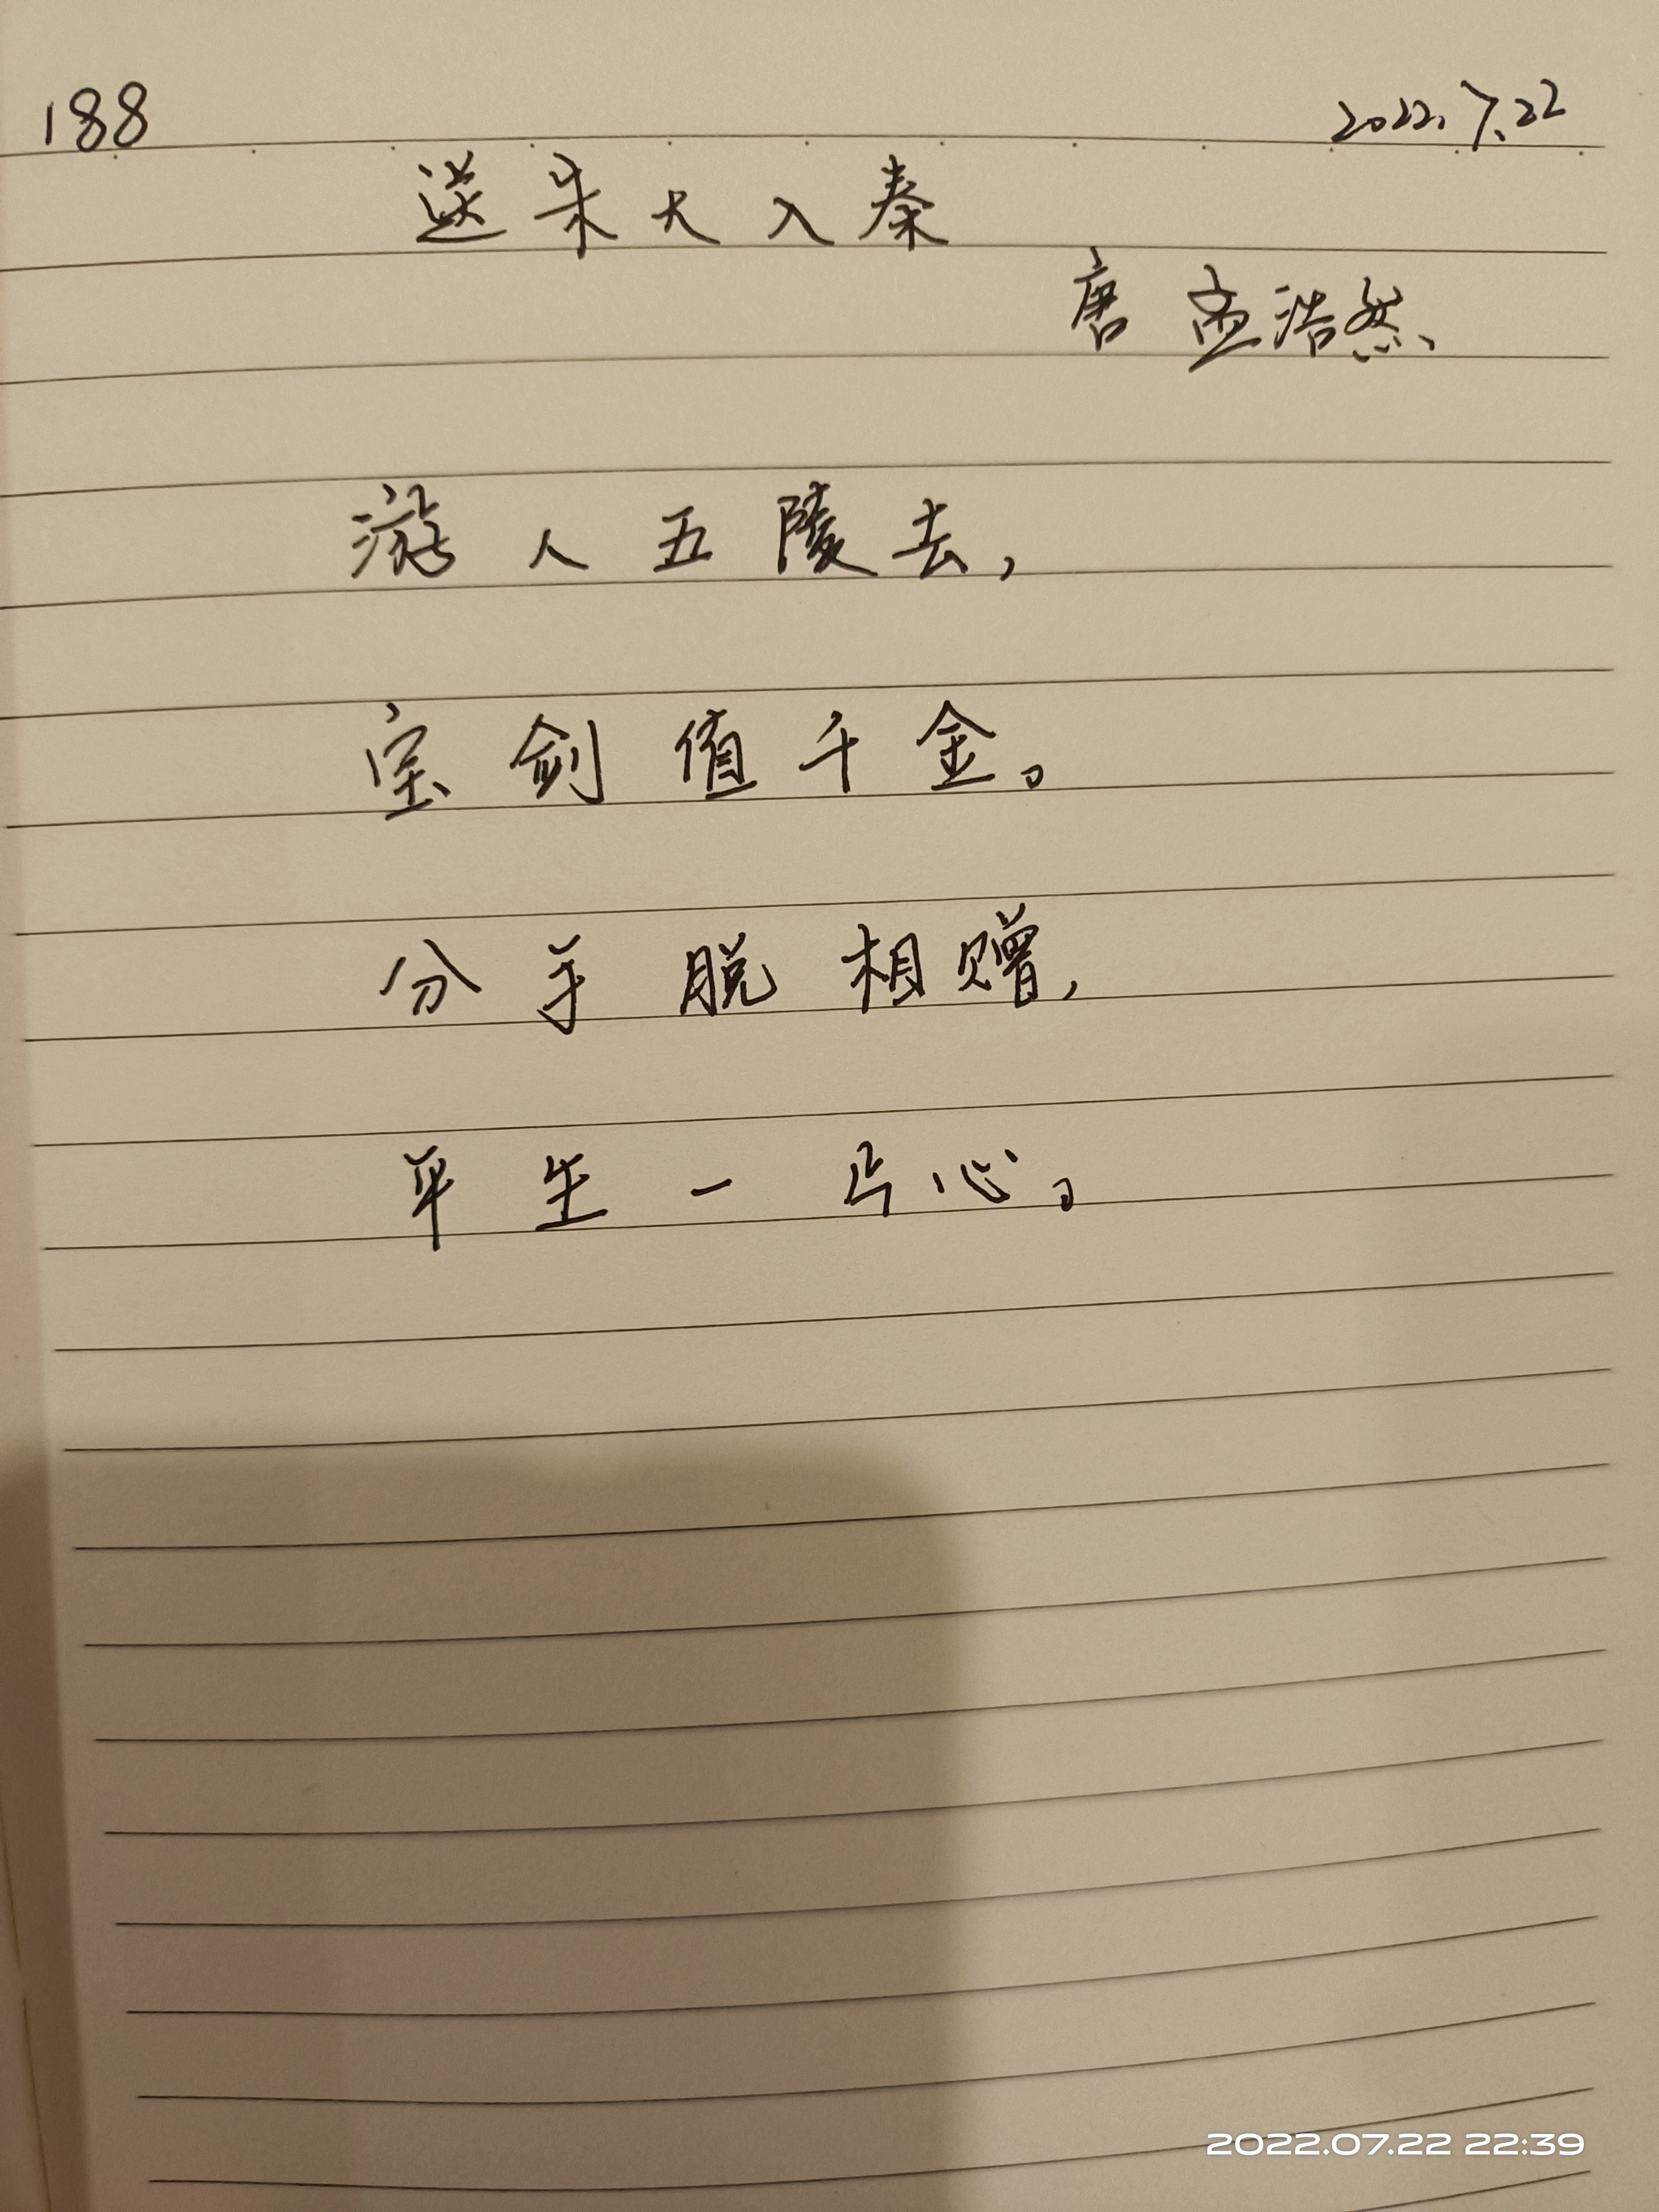 188 2022.7.22
送朱大入秦
唐 孟浩然
游人五陵去，
宝剑值千金。
分手脱相赠，
平生一片心。
2022.07.22 22:39